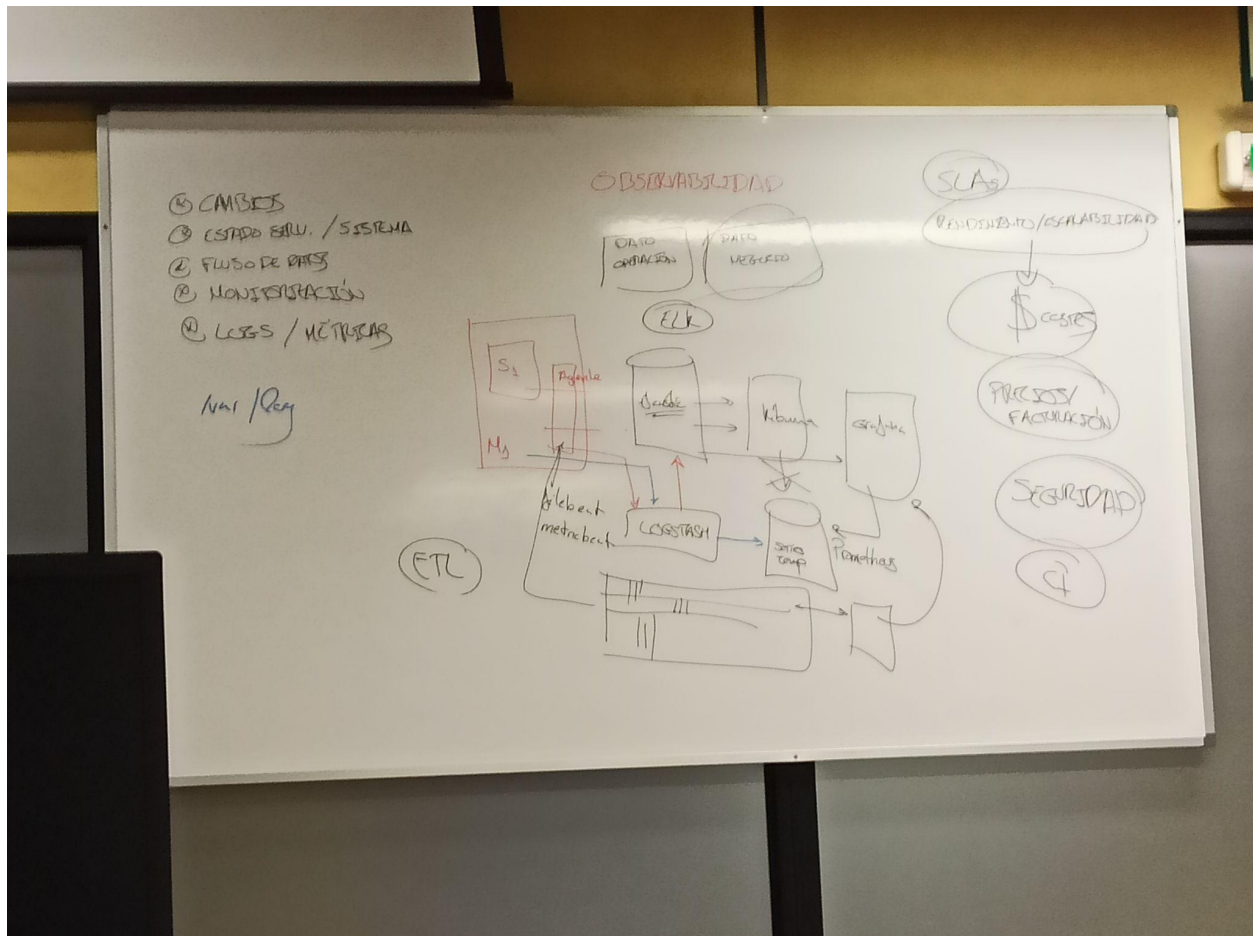 CAMBIOS
ESTADO SERV. / SISTEMA
FLUJO DE DATOS
MONITORIZACIÓN
LOGS / MÉTRICAS
OBSERVABILIDAD
DATO
OPERACIÓN
DATO
NEGOCIO
ELK
S1
Agente
M1
Kibana
Grafana
filebeat
metricbeat
LOGSTASH
series
temp
Prometheus
ETL
SLAs
RENDIMIENTO/ESCALABILIDAD
$ COSTES
PRECIOS/
FACTURACIÓN
SEGURIDAD
CI